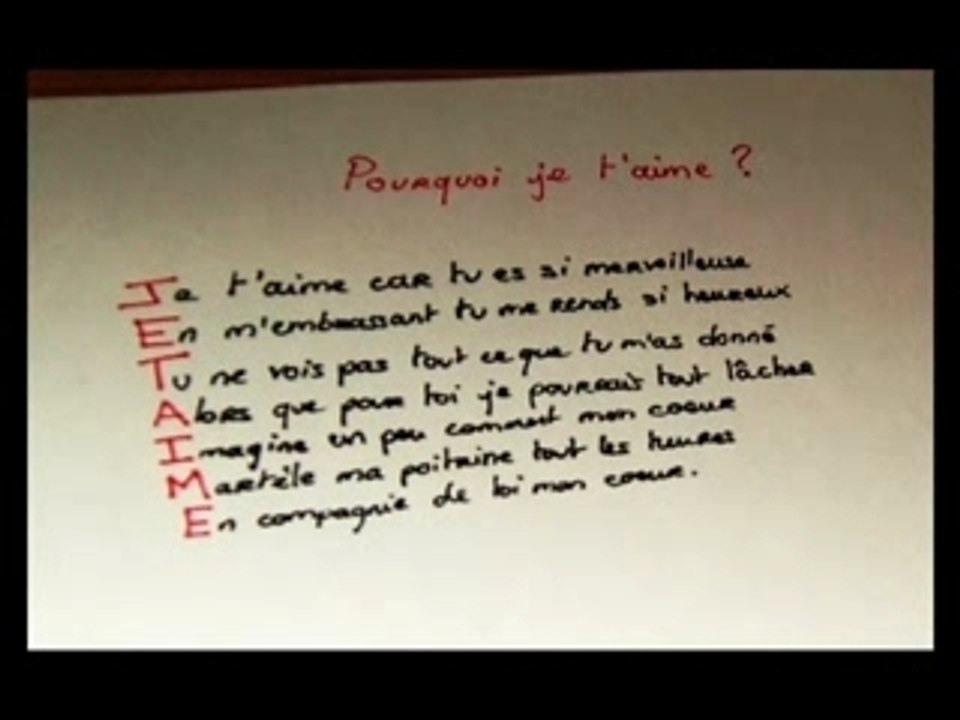 Pourquoi je t'aime ?
Je t'aime car tu es si merveilleuse
En m'embrassant tu me rends si heureux
Tu ne vois pas tout ce que tu m'as donné
Alors que pour toi je pourrais tout lâcher
Imagine un peu comment mon coeur
Martèle ma poitrine tout les heures
En compagnie de toi mon coeur.